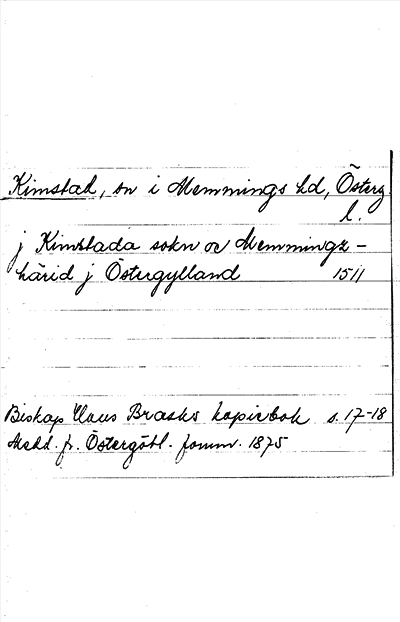 Kimstad, sn i Memmings hd, Österg
l.
j Kimstada sokn oc Memmingx-
härid j Östergylland 1511
Biskop Hans Brasks kopiebok s. 17-18
Medd. fr. Östergötl. fornm. 1875